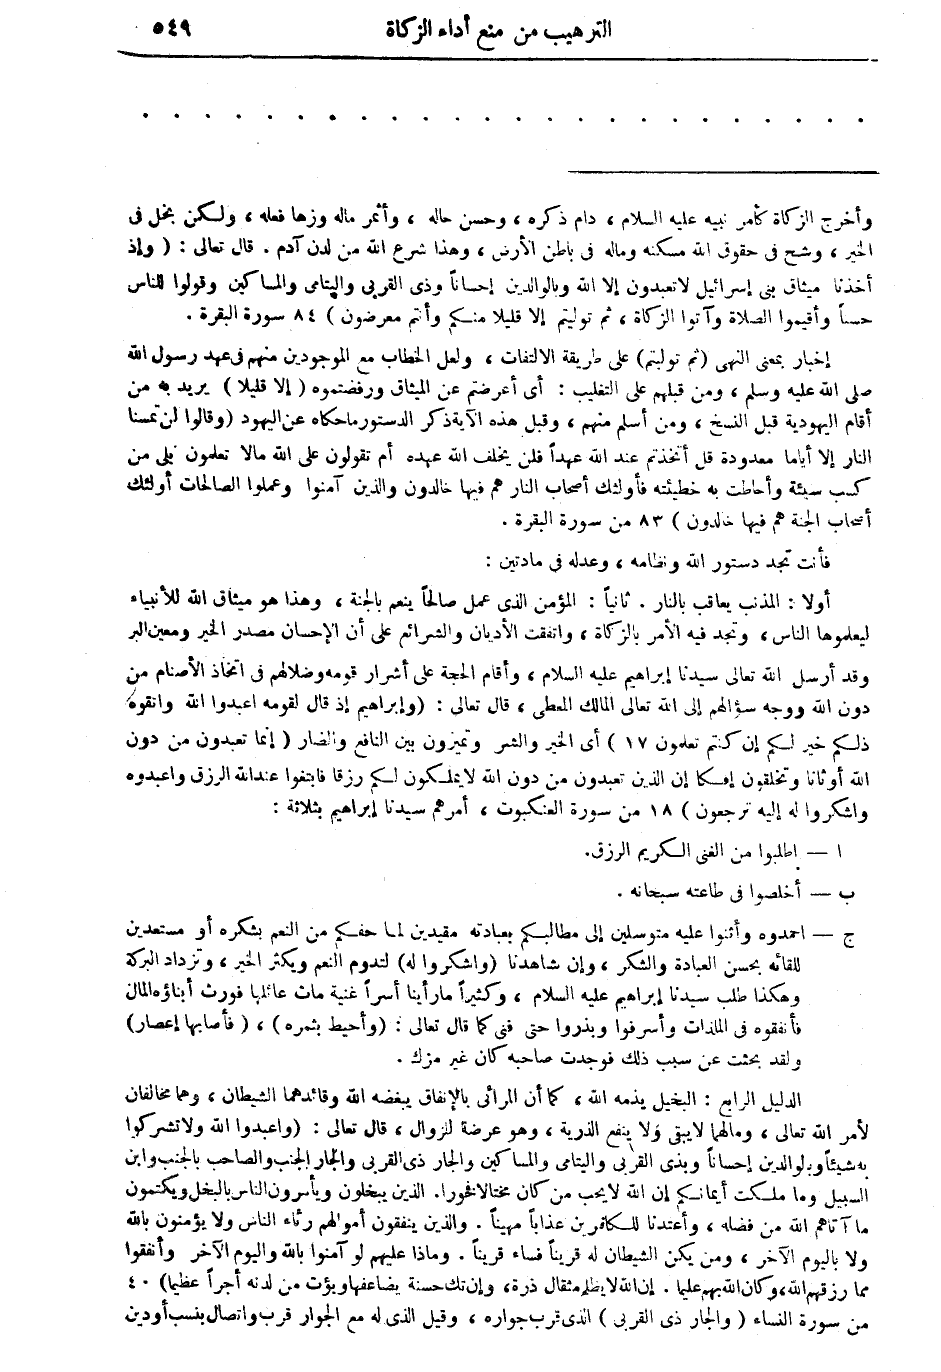 الترهيب من منع أداء الزكاة ٥٤٩
وأخرج الزكاة كأمر نبيه عليه السلام ، دام ذكره ، وحسن حاله ، وأثمر ماله وزها فعله ، ولكن بخل فى
الخير ، وشح فى حقوق الله مسكنه وماله فى باطن الأرض ، وهذا شرع الله من لدن آدم . قال تعالى : ( وإذ
أخذنا ميثاق بنى إسرائيل لاتعبدون إلا الله وبالوالدين إحساناً وذى القربى واليتامى والمساكين وقولوا للناس
حسناً وأقيموا الصلاة وآتوا الزكاة ، ثم توليتم إلا قليلا منكم وأنتم معرضون ) ٨٤ سورة البقرة .
إخبار بمعنى النهى (ثم توليتم) على طريقة الالتفات ، ولعل الخطاب مع الموجودين منهم فى عهد رسول الله
صلى الله عليه وسلم ، ومن قبلهم على التغليب : أى أعرضتم عن الميثاق ورفضتموه ( إلا قليلا ) يريد به من
أقام اليهودية قبل النسخ ، ومن أسلم منهم ، وقبل هذه الآية ذكر الدستور ماحكاه عن اليهود (وقالوا لن تمسنا
النار إلا أياما معدودة قل أتخذتم عند الله عهداً فلن يخلف الله عهده أم تقولون على الله مالا تعلمون بلى من
كسب سيئة وأحاطت به خطيئته فأولئك أصحاب النار هم فيها خالدون والذين آمنوا وعملوا الصالحات أولئك
أصحاب الجنة هم فيها خالدون ) ٨٣ من سورة البقرة .
فأنت تجد دستور الله ونظامه ، وعدله فى مادتين :
أولا : المذنب يعاقب بالنار . ثانياً : المؤمن الذى عمل صالحاً ينعم بالجنة ، وهذا هو ميثاق الله للأنبياء
ليعلموها الناس ، وتجد فيه الأمر بالزكاة ، واتفقت الأديان والشرائع على أن الإحسان مصدر الخير ومعين البر
وقد أرسل الله تعالى سيدنا إبراهيم عليه السلام ، وأقام الحجة على أشرار قومه وضلالهم فى اتخاذ الأصنام من
دون الله ووجه سؤالهم إلى الله تعالى المالك المعطى ، قال تعالى : (وإبراهيم إذ قال لقومه اعبدوا الله واتقوه
ذلكم خير لكم إن كنتم تعلمون ١٧ ) أى الخير والشر وتميزون بين النافع والضار ( إنما تعبدون من دون
الله أوثانا وتخلقون إفكا إن الذين تعبدون من دون الله لايملكون لكم رزقا فابتغوا عند الله الرزق واعبدوه
واشكروا له إليه ترجعون ) ١٨ من سورة العنكبوت ، أمرهم سيدنا إبراهيم بثلاثة :
ا — اطلبوا من الغنى الكريم الرزق.
ب — أخلصوا فى طاعته سبحانه .
ج — احمدوه وأثنوا عليه متوسلين إلى مطالبكم بعبادته مقيدين لما حفكم من النعم بشكره أو مستعدين
للقائه بحسن العبادة والشكر ، وإن شاهدنا (واشكروا له) لتدوم النعم ويكثر الخير ، وتزداد البركة
وهكذا طلب سيدنا إبراهيم عليه السلام ، وكثيراً مارأينا أسراً غنية مات عائلها فورث أبناؤه المال
فأنفقوه فى الملذات وأسرفوا وبذروا حتى فنى كما قال تعالى : (وأحيط بثمره) ، ( فأصابها إعصار)
ولقد بحثت عن سبب ذلك فوجدت صاحبه كان غير مزك .
الدليل الرابع : البخيل يذمه الله ، كما أن المرائى بالإنفاق يبغضه الله وقائدهما الشيطان ، وهما مخالفان
لأمر الله تعالى ، ومالهما لايبقى ولا ينفع الذرية ، وهو عرضة للزوال ، قال تعالى : (واعبدوا الله ولاتشركوا
به شيئاً وبالوالدين إحساناً وبذى القربى واليتامى والمساكين والجار ذى القربى والجار الجنب والصاحب بالجنب وابن
السبيل وما ملكت أيمانكم إن الله لايحب من كان مختالا فخورا. الذين يبخلون ويأمرون الناس بالبخل ويكتمون
ما آتاهم الله من فضله ، وأعتدنا للكافرين عذاباً مهيناً . والذين ينفقون أموالهم رئاء الناس ولا يؤمنون بالله
ولا باليوم الآخر ، ومن يكن الشيطان له قريناً فساء قريناً . وماذا عليهم لو آمنوا بالله واليوم الآخر وأنفقوا
مما رزقهم الله، وكان الله بهم عليما . إن الله لا يظلم مثقال ذرة، وإن تك حسنة يضاعفها ويؤت من لدنه أجراً عظيما) ٤٠
من سورة النساء ( والجار ذى القربى ) الذى قرب جواره ، وقيل الذى له مع الجوار قرب واتصال بنسب أودين